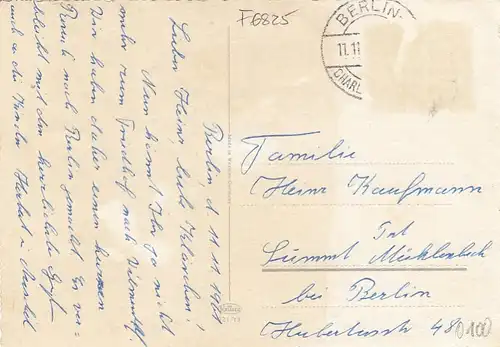 F6825
BERLIN-
11.11
CHARL
Berlin, d. 11.11.1961
Lieber Heinz, liebe Klärchen!
Nun könnt Ihr ja nicht
mehr zum Friedhof nach Wilmersdf.
Wir haben daher einen kurzen
Besuch nach Berlin gemacht. Es ver-
bleibt mit den herzlichsten Grüßen
auch an die Kinder Herbert u.
Familie
Heinz Kaufmann
Summt Mühlenbeck
bei Berlin
Hubertusstr 48
0100